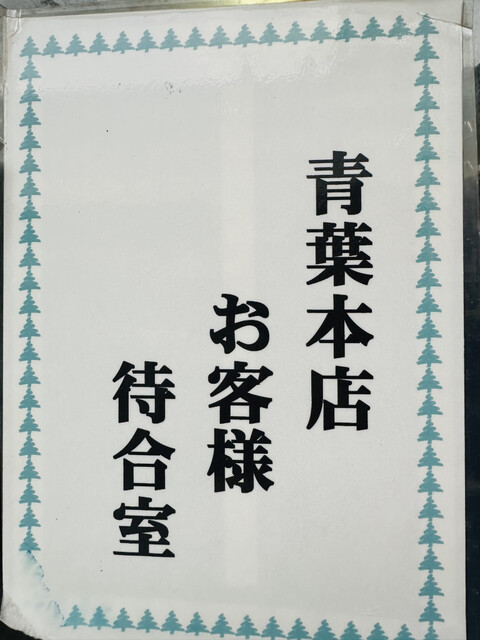 青葉本店
お客様
待合室